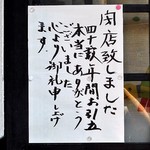 閉店致しました
四十数年間お引立
本当にありがとう
ございました
心より御礼申し上げ
ます。